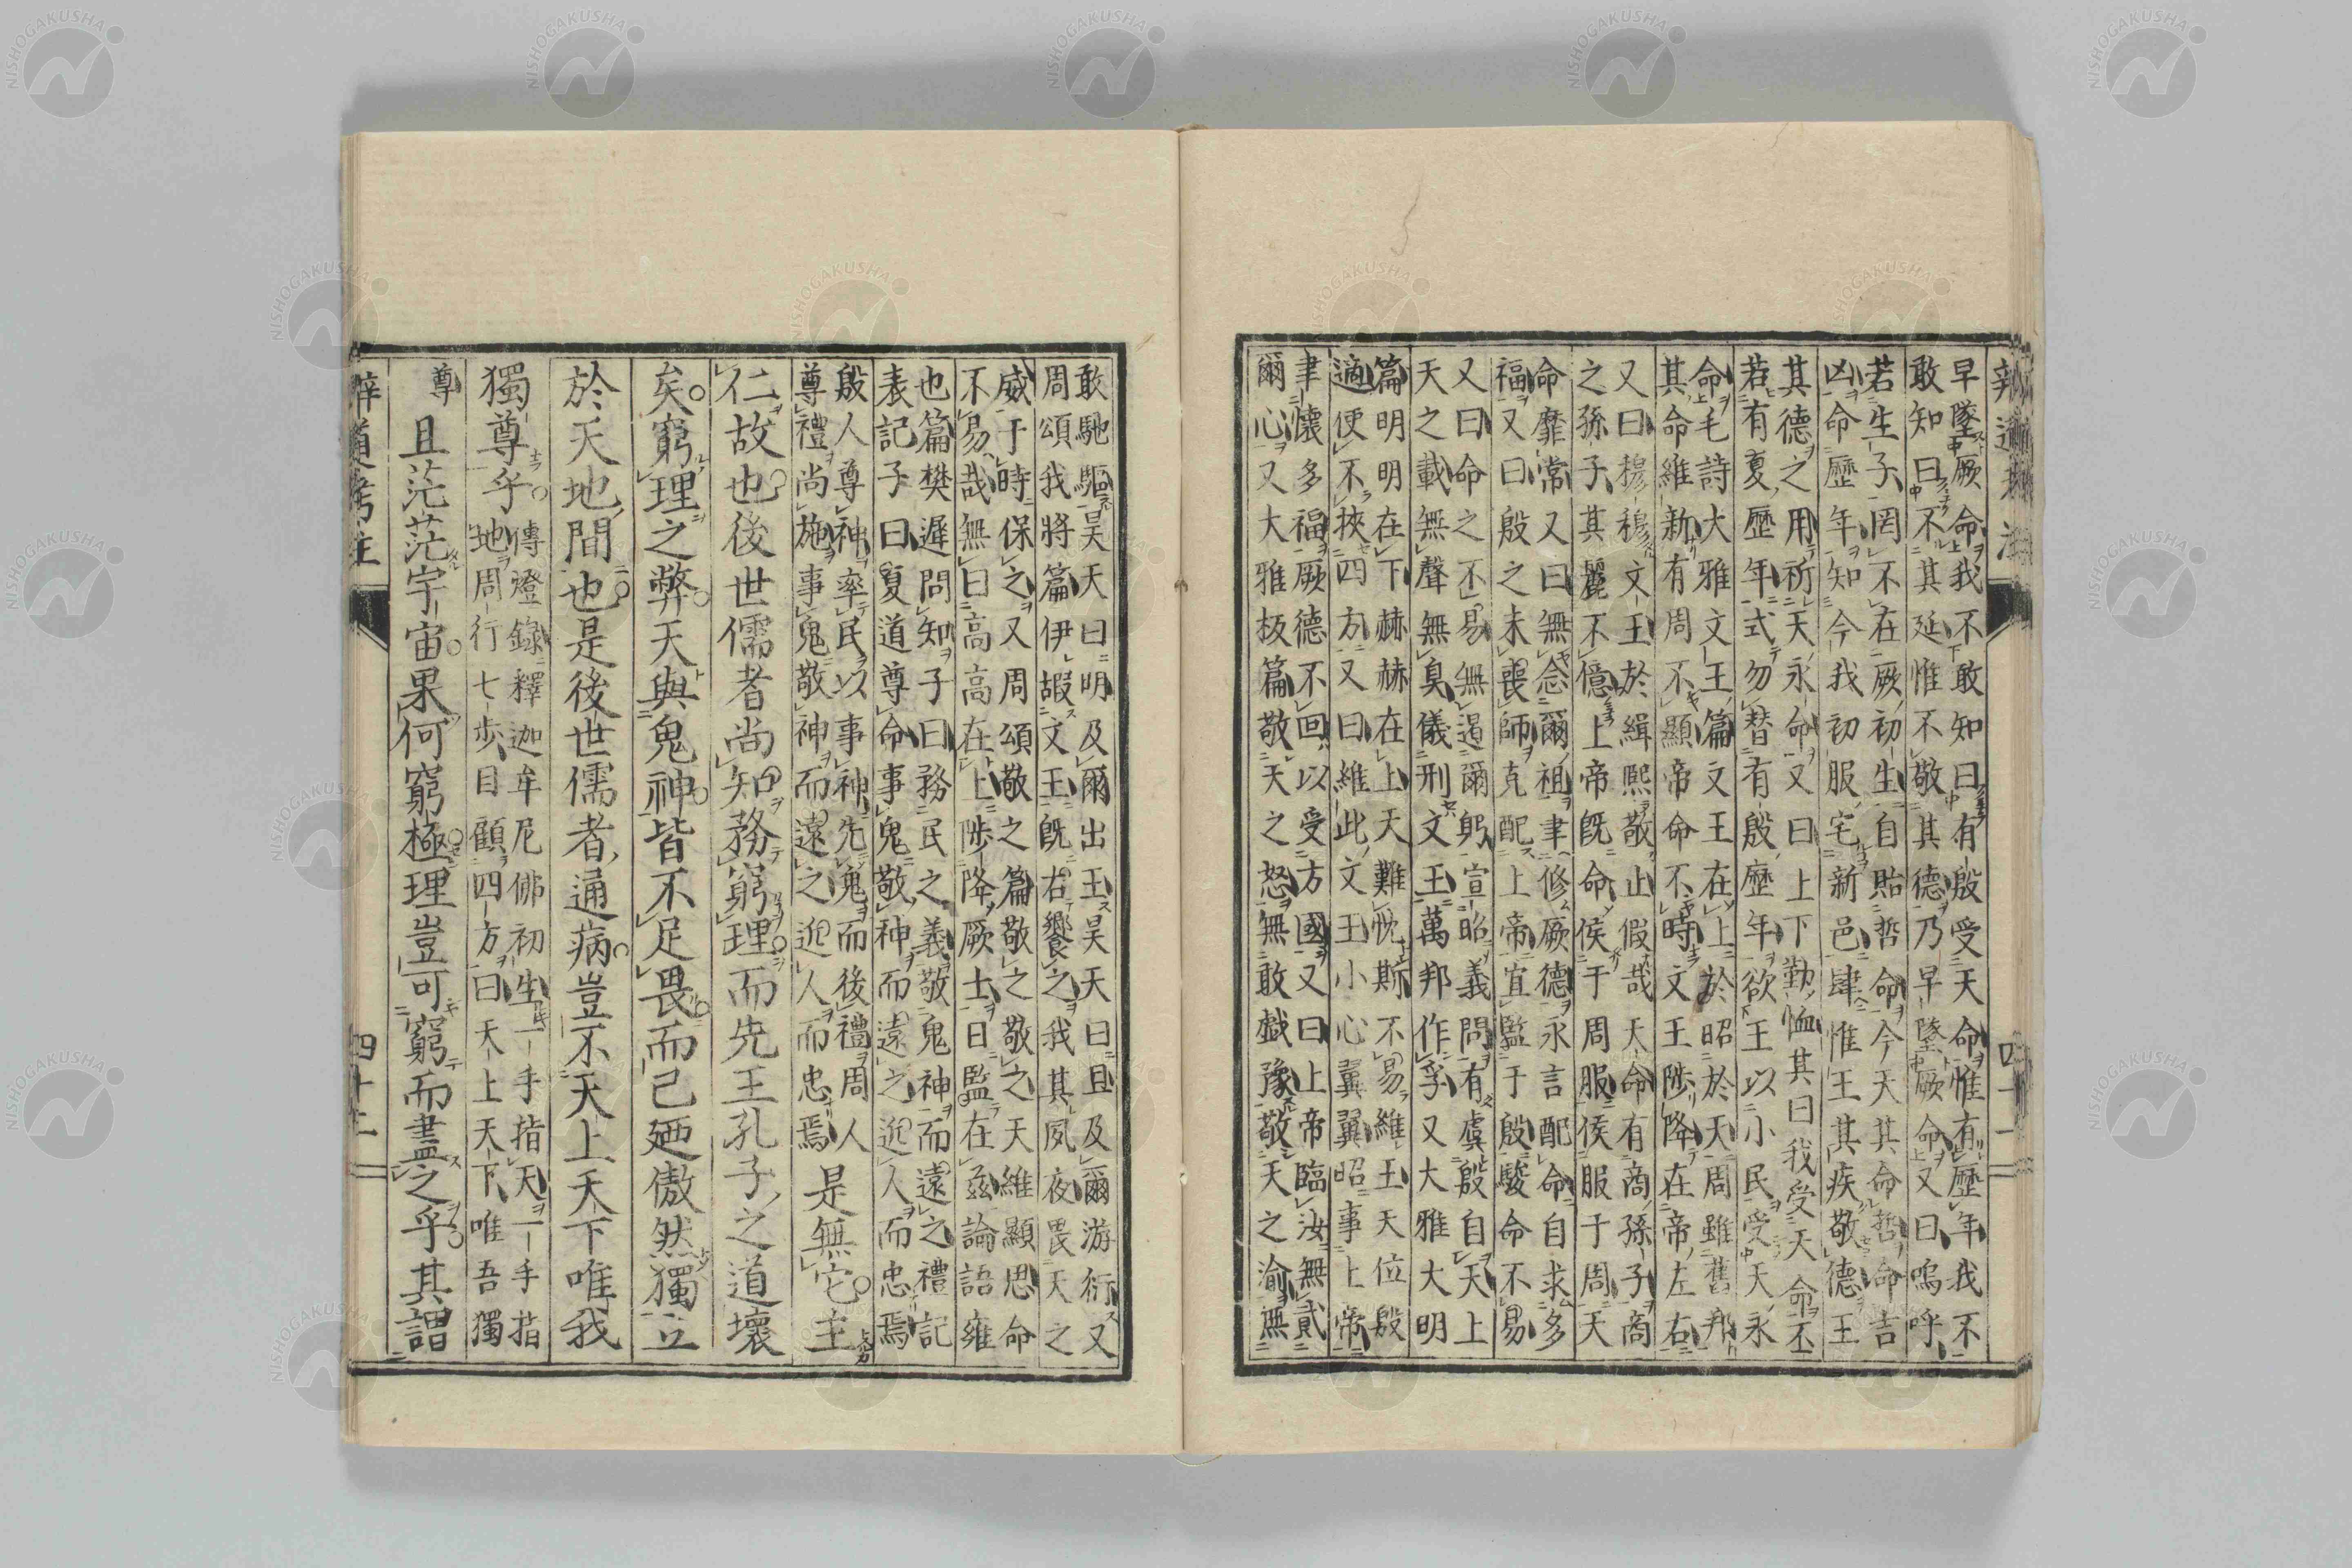 辨道考注
四十一
早墜厥命我不敢知曰有殷受天命惟有歷年我不
敢知曰不其延惟不敬其德乃早墜厥命又曰嗚呼
若生子罔不在厥初生自貽哲命今天其命哲命吉
凶命歷年知今我初服宅新邑肆惟王其疾敬德王
其德之用祈天永命又曰上下勤恤其曰我受天命丕
若有夏歷年式勿替有殷歷年欲王以小民受天永
命毛詩大雅文王篇文王在上於昭於天周雖舊邦
其命維新有周不顯帝命不時文王陟降在帝左右
又曰穆穆文王於緝熙敬止假哉天命有商孫子商
之孫子其麗不億上帝既命侯于周服侯服于周天
命靡常又曰無念爾祖聿修厥德永言配命自求多
福又曰殷之未喪師克配上帝宜監于殷駿命不易
又曰命之不易無遏爾躬宣昭義問有虞殷自天上
天之載無聲無臭儀刑文王萬邦作孚又大雅大明
篇明明在下赫赫在上天難忱斯不易維王天位殷
適便不挾四方又曰維此文王小心翼翼昭事上帝
聿懷多福厥德不回以受方國又曰上帝臨汝無貳
爾心又大雅板篇敬天之怒無敢戲豫敬天之渝無
敢馳驅昊天曰明及爾出王昊天曰旦及爾游衍又
周頌我將篇伊嘏文王既右饗之我其夙夜畏天之
威于時保之又周頌敬之篇敬之敬之天維顯思命
不易哉無曰高高在上陟降厥士日監在茲論語雍
也篇樊遲問知子曰務民之義敬鬼神而遠之禮記
表記子曰夏道尊命事鬼敬神而遠之近人而忠焉
殷人尊神率民以事神先鬼而後禮周人
尊禮尚施事鬼敬神而遠之近人而忠焉
是無它主
仁故也後世儒者尚知務窮理而先王孔子之道壞
矣窮理之弊天與鬼神皆不足畏而己廼傲然獨立
於天地間也是後世儒者通病豈不天上天下唯我
獨尊乎
傳燈錄釋迦牟尼佛初生一手指天一手指
地周行七步目顧四方曰天上天下唯吾獨
尊
且茫茫宇宙果何窮極理豈可窮而盡之乎其謂
辨道考注
四十二
NISHOGAKUSHA